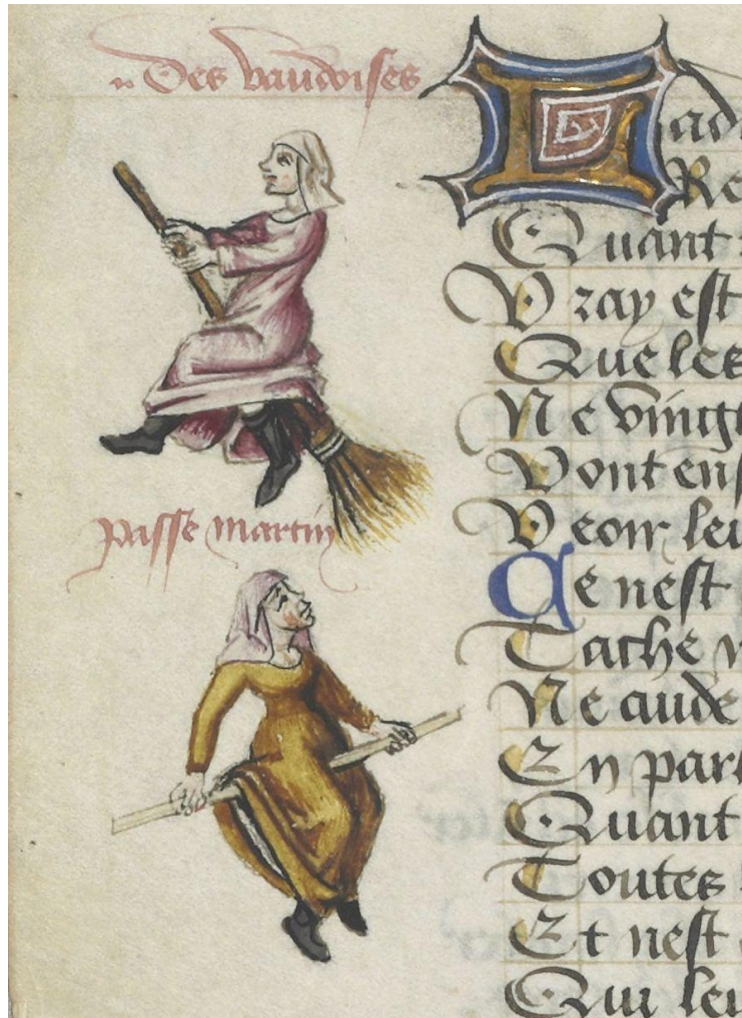 Des vaudoises
passe martin
Quant
Vray est
Que les
Ne vingt
Vont en
Veoir leu
Ce nest
Tache
Ne aude
En part
Quant
Toutes
Et nest
Qui leu